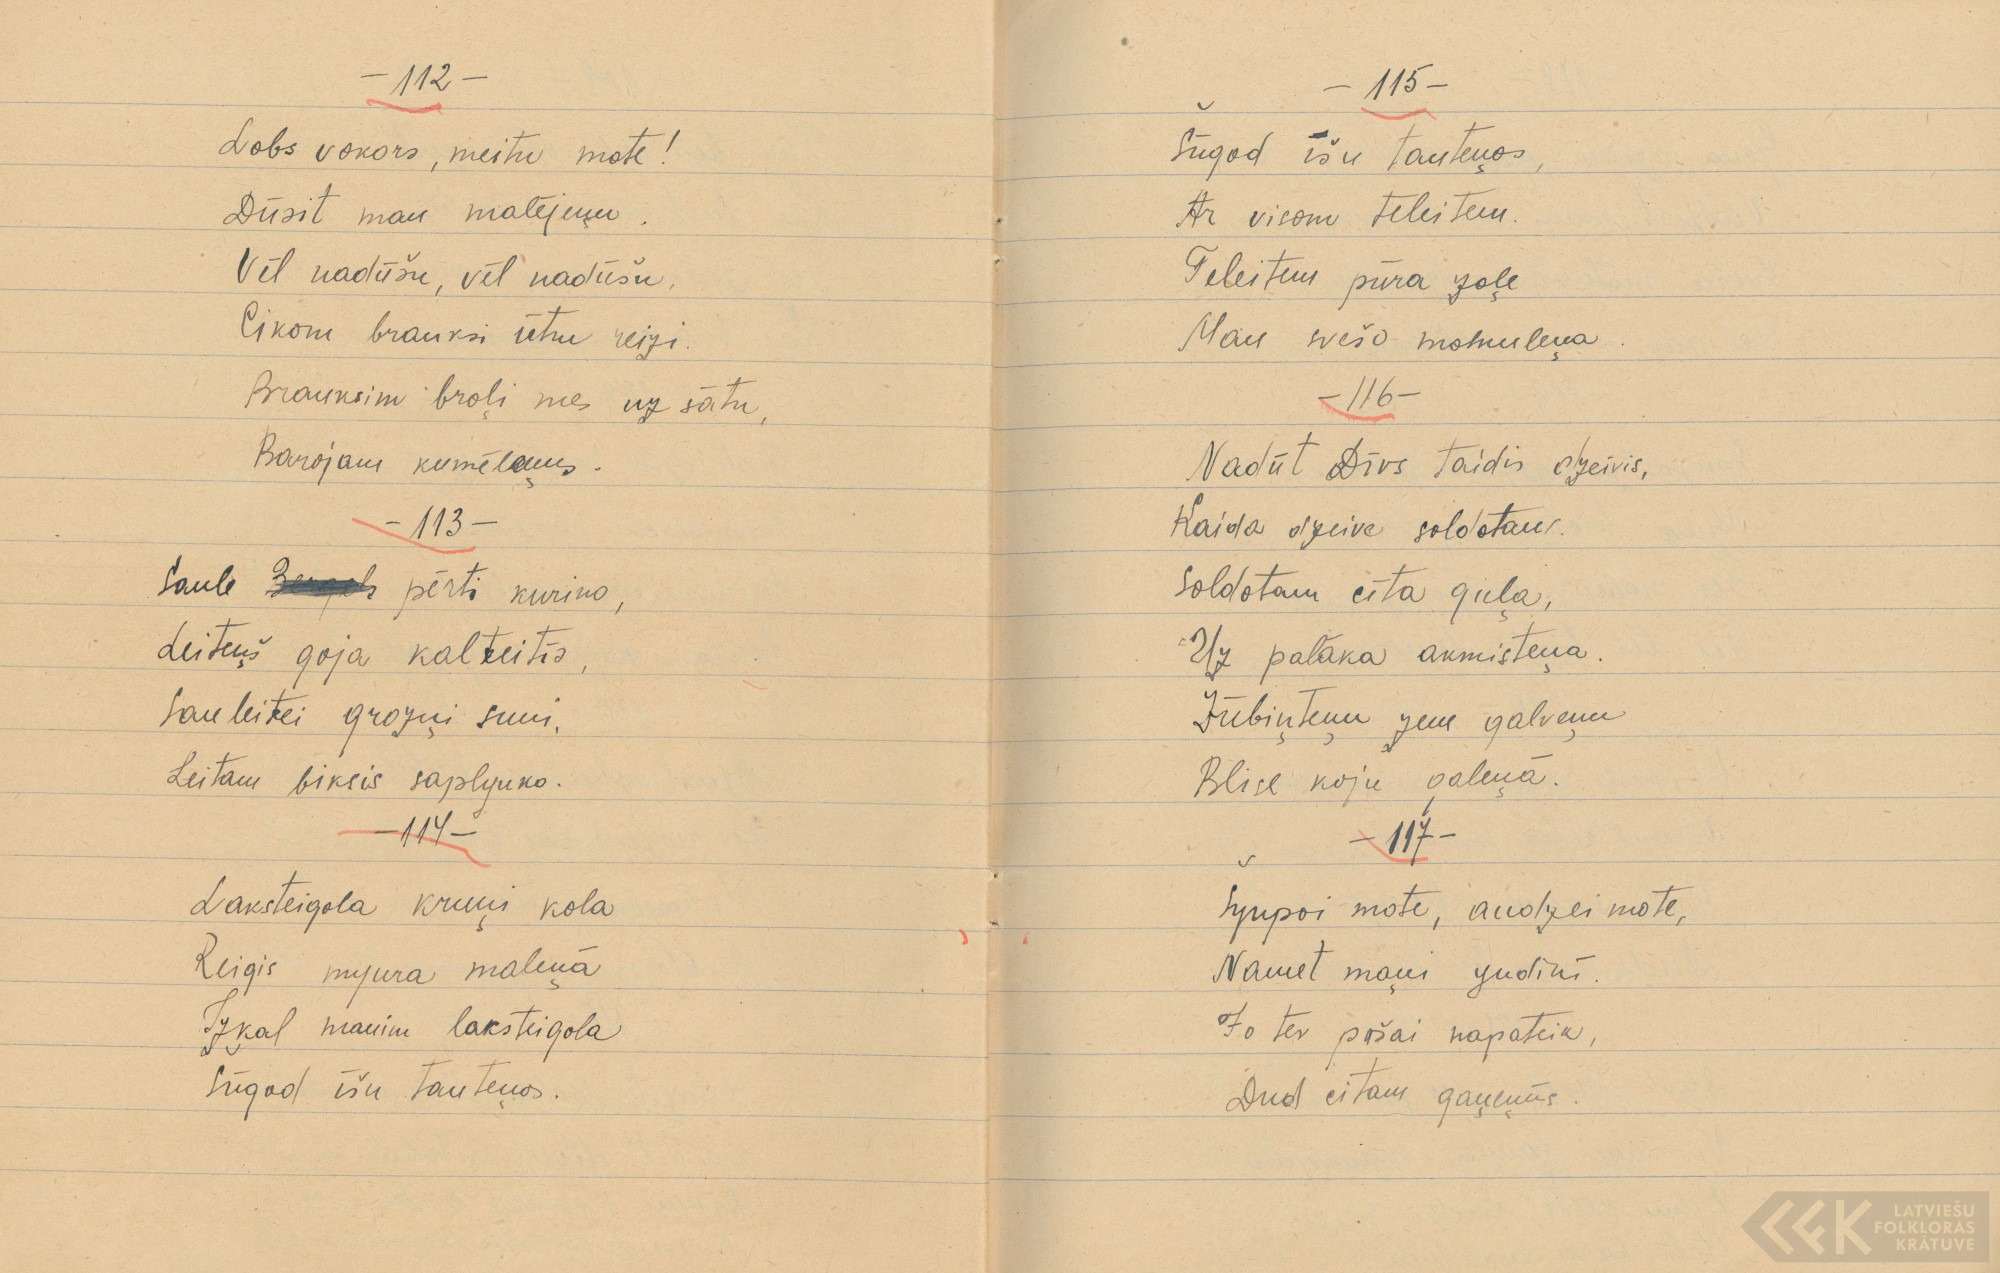 - 112 -
Lobs vokors, meitu mote!
Dūsit man matējeņu.
Vēl nadūšu, vēl nadūšu,
Cikom brauksi ūtru reizi.
Brauksim broļi mes uz sātu,
Barojam kumēleņus.
- 113 -
Saule pērti kurino,
Leiteņš goja kalteitīs,
Sauleitei grozņi suni,
Leitam biksis saplynko.
- 114 -
Laksteigola kruņi kola
Reigis myura maleņā
Izkal manim laksteigola
Sūgod īšu tauteņos.
- 115 -
Šūgod īšu tauteņos,
Ar visom teleitem.
Teleitem pūra zoļe
Man svešo momuleņa.
- 116 -
Nadūt Dīvs taidis dzeivis,
Kaida dzeive soldotam.
Soldotam cīta guļa,
Uz palāka akmisteņa.
Zūbiņteņu zem galveņu
Blise koju galeņā.
- 117 -
Šyupoi mote, audzei mote,
Namet maņi yudinī.
Jo tev pošai napateik,
Dud citam gaņeņūs.
LATVIEŠU
FOLKLORAS
KRĀTUVE